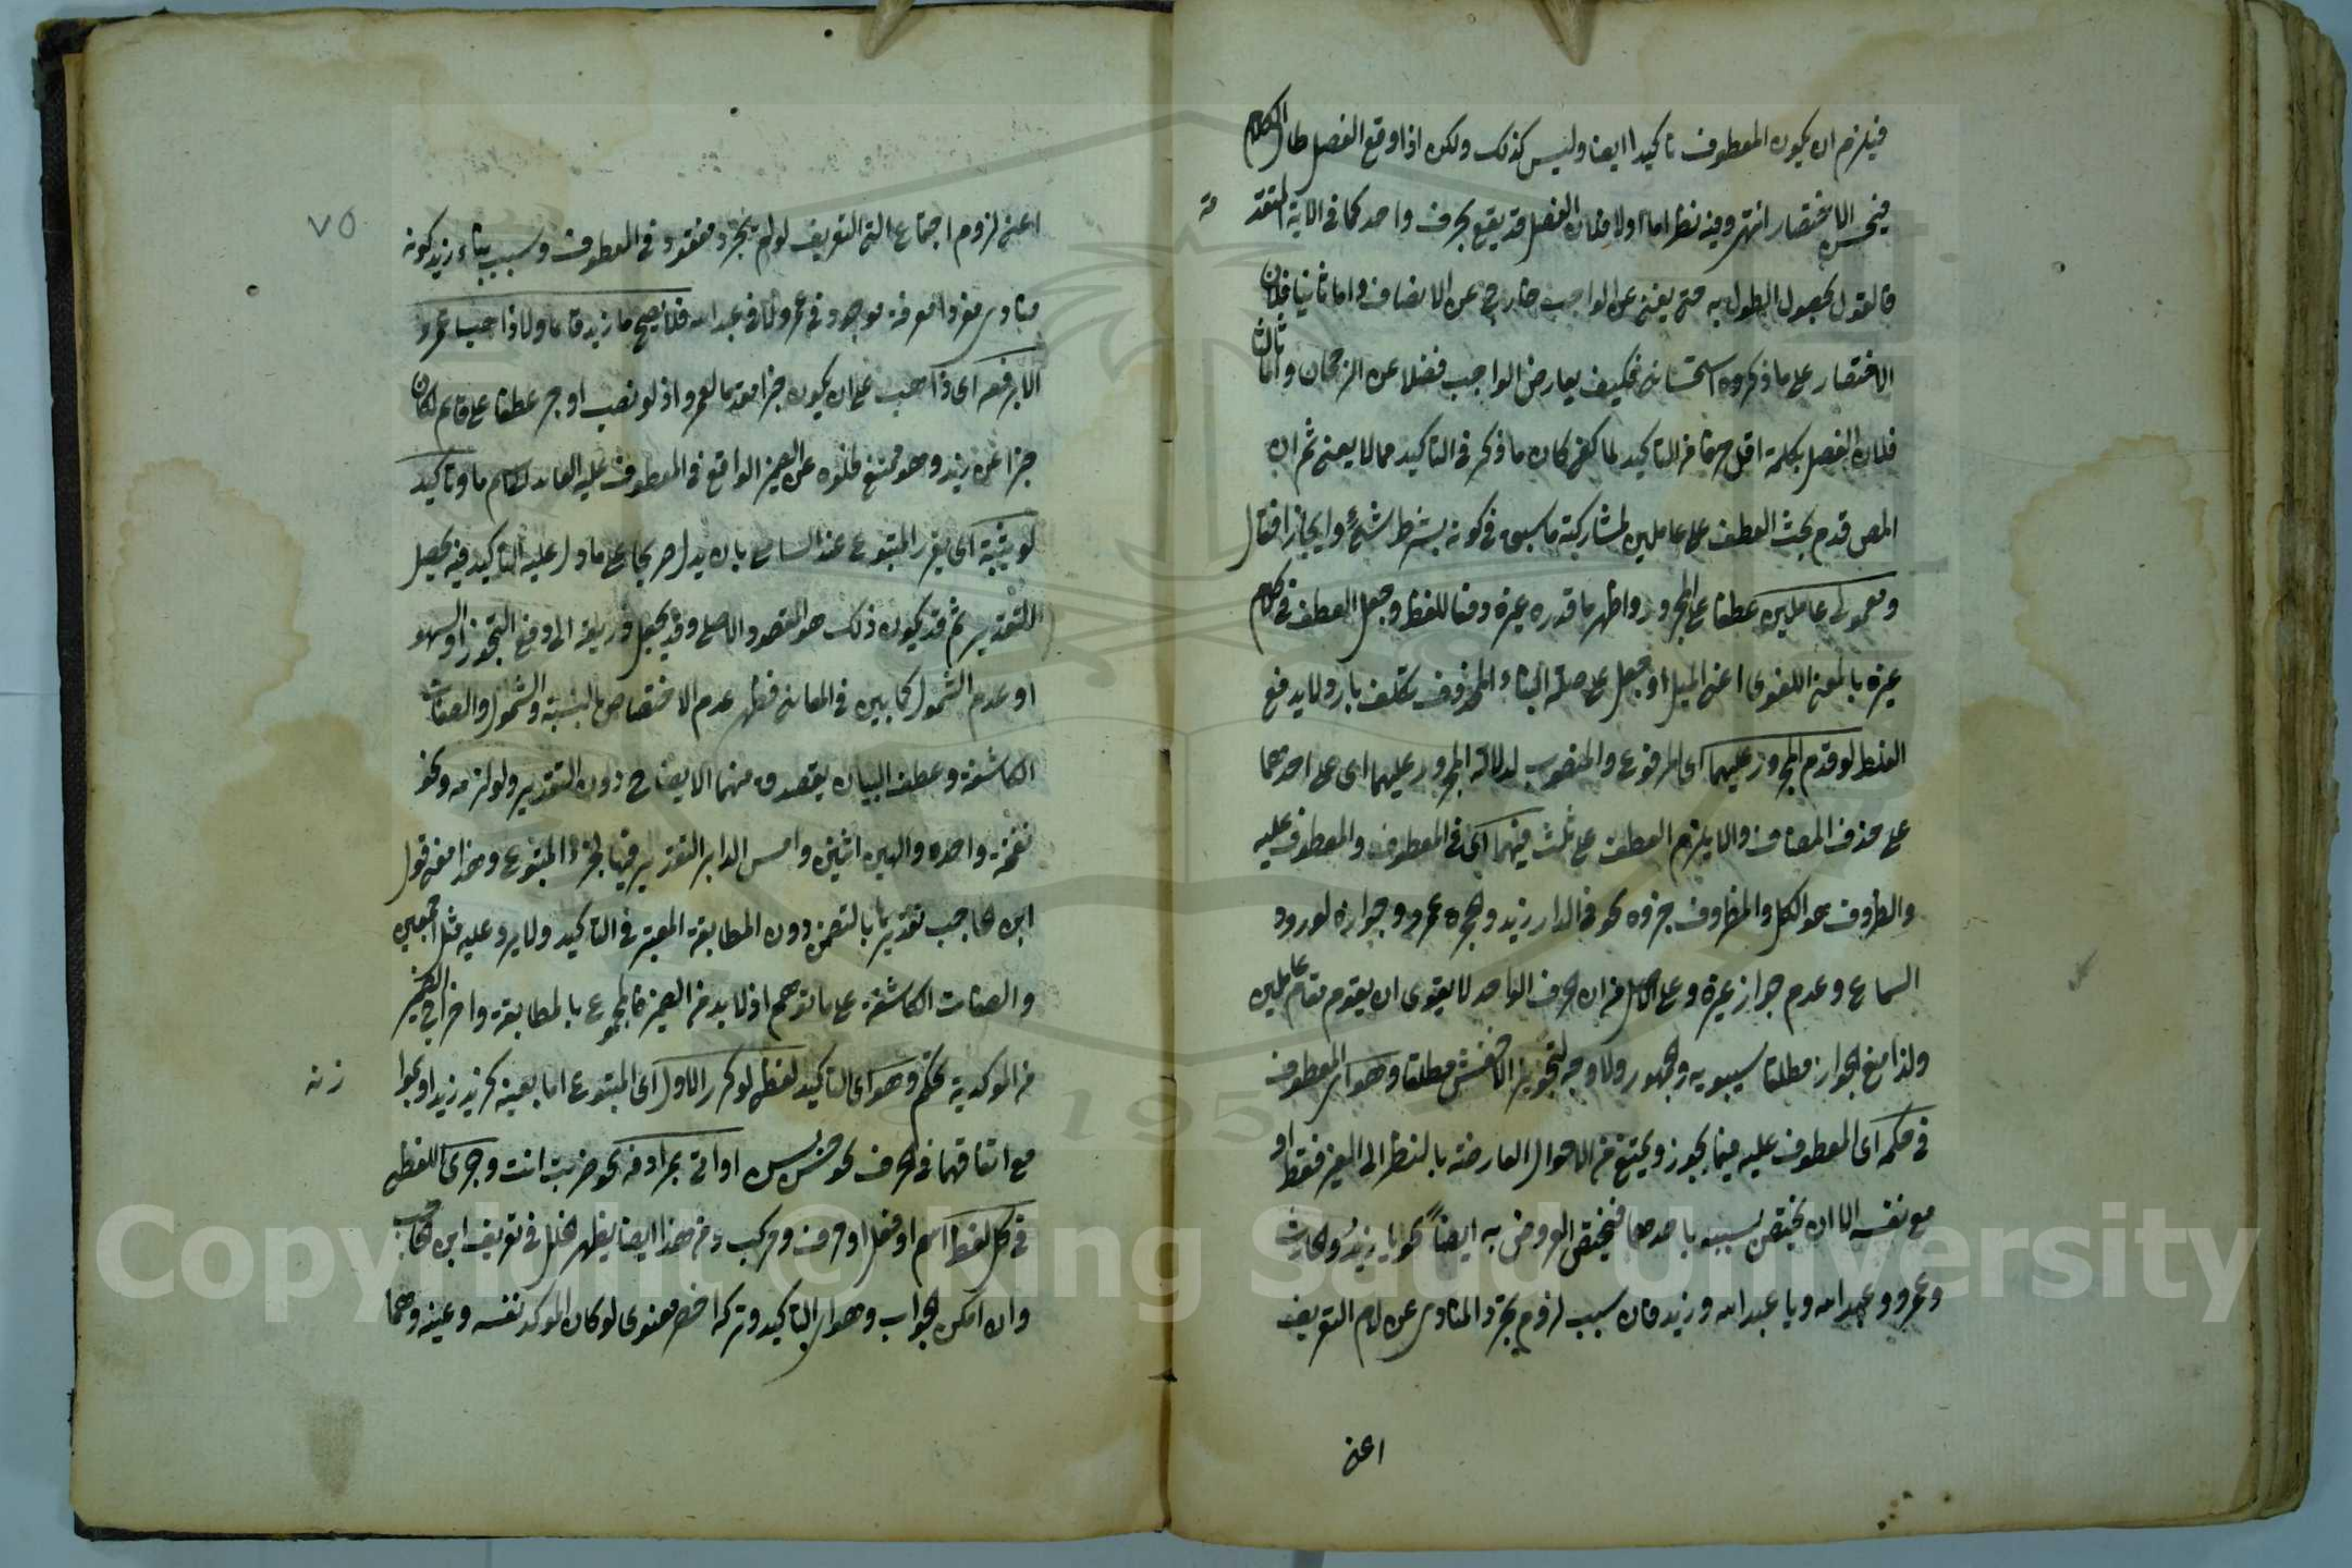 فيلزم ان يكون المعطوف تاكيدا ايضا وليس كذلك ولكن اذا وقع الفصل طال الكلام
فيحسن الاختصار انتهى وفيه نظر اما اولا فلان الفصل قد يقع بحرف واحد كما فى الاية المتقد
مة
فالقول بحصول الطول به حتى يغنى عن الواجب خارج عن الانصاف واما ثانيا فلان
الاختصار على ما ذكروه استحسانى فكيف يعارض الواجب فضلا عن الرجحان واما ثالثا
فلان الفصل بكلمة اقل حرفا من التاكيد لما كفى كان ما ذكر فى التاكيد مما لا يعنى ثم ان
المص قدم بحث العطف على عاملين لمشاركته ما سبق فى كونه بشرط شئ وايجازا فقال
ومعمولى عاملين عطفا على المجرور واظهر ما قدره غيره وفقا للفظ وجعل العطف فى كلام
غيره بالمعنى اللغوى اعنى الميل او جعل على صلة البناء المحذوف تكلف بارد ولا يدفع
الغلط لو قدم المجرور عليهما اى المرفوع والمنصوب لدلالة المجرور عليهما اى على احدهما
على حذف المضاف والا يلزم العطف على ثلث فيهما اى فى المعطوف والمعطوف عليه
والظروف هو الكل والمظروف جزؤه نحو فى الدار زيد والحجرة عمرو وجوازه لورود
السماع وعدم جواز غيره وعلى الاصل من ان الحرف الواحد لا يقوى ان يقوم مقام عاملين
ولذا منع الجواز مطلقا سيبويه والجمهور ولا وجه لتجويز الاخفش مطلقا وهو اى المعطوف
فى حكم اى المعطوف عليه فيما يجوز ويمتنع من الاحوال العارضة بالنظر الى الغير فقط او
مع نفسه الا ان يختص سببه باحدهما فيختص العروض به ايضاً نحو يا زيدُ والحارث
وعمرو وعبد الله ويا عبد الله وزيد فان سبب لزوم تجرد المنادى عن لام التعريف
اعنى
٧٥
اعنى لزوم اجتماع التى التعريف لو لم يتجرد مفقود فى المعطوف وسبب بناء زيد كونه
منادى مفردا معرفة موجود فى عمرو لا فى عبد الله فلا يصح ما زيد قائما ولا ذاهب عمرو
الا برفعه اى ذاهب على ان يكون خبرا مقدما لعمرو اذ لو نصب او جر عطفا على قائم لكان
خبرا عن زيد وهو ممتنع لخلوه عن الضمير الواقع فى المعطوف عليه العائد لاسم ما وتاكيد
لو يثبته اى يقرر المتبوع عند السامع بان يدل صريحا على ما دل عليه التاكيد فيه يحصل
التقرير ثم قد يكون ذلك هو المقصود الاصلى وقد يجعل ذريعة الى دفع التجوز او السهو
او عدم الشمول كما بين فى المعانى فظهر عدم الاختصاص بالنسبة والشمول والصفات
الكاشفة وعطف البيان يقصد منهما الايضاح دون التقرير ولو لزمه ونحو
نفخة واحدة والهين اثنين وامس الدابر التقرير فيها لجزء المتبوع وهذا معنى قول
ابن الحاجب تقريرا بالتضمن دون المطابقة المعتبر فى التاكيد ولا يرد عليه مثل اجمعين
والصفات الكاشفة على ما توهم اذ لا بد من الضمير فالمجموع بالمطابقة واخراج الضمير
من المؤكدية تحكم وهو اى التاكيد لفظى لو كرر الاول اى المتبوع اما بعينه كزيد زيد او بموا
زنه
مع اتفاقهما فى الحرف نحو حسن بسن او اتى بمرادفه نحو ضربت انت وجرى اللفظى
فى كل لفظ اسم او فعل او حرف ومركب ومن هذا ايضا يظهر الخلل فى تعريف ابن الحاجب
وان امكن الجواب وهو اى التاكيد وتركه اخصر معنوى لو كان المؤكد نفسه وعينه وهما
Copyright © King Saud University
195